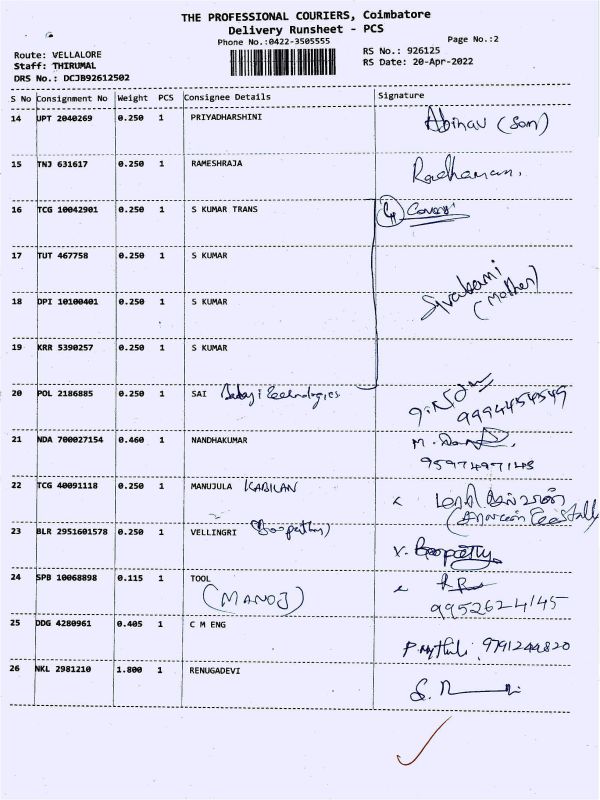 THE PROFESSIONAL COURIERS, Coimbatore
Delivery Runsheet - PCS
Phone No.:0422-3505555
Page No.:2
Route: VELLALORE
RS No.: 926125
Staff: THIRUMAL
RS Date: 20-Apr-2022
DRS No.: DCJB92612502
S No Consignment No Weight PCS Consignee Details Signature
14 UPT 2040269 0.250 1 PRIYADHARSHINI Abinav (Son)
15 TNJ 631617 0.250 1 RAMESHRAJA
16 TCG 10042901 0.250 1 S KUMAR TRANS
17 TUT 467758 0.250 1 S KUMAR
Sivakami
(Mother)
18 DPI 10100401 0.250 1 S KUMAR
19 KRR 5390257 0.250 1 S KUMAR
20 POL 2186885 0.250 1 SAI Technologies
9994454549
21 NDA 700027154 0.460 1 NANDHAKUMAR
9597497143
22 TCG 40091118 0.250 1 MANUJULA KABILAN
23 BLR 2951601578 0.250 1 VELLINGRI (Boopathy)
V. Boopathy
24 SPB 10068898 0.115 1 TOOL
(MANOJ) 9952624145
25 DDG 4280961 0.405 1 C M ENG
P. Mythili 9791244820
26 NKL 2981210 1.800 1 RENUGADEVI